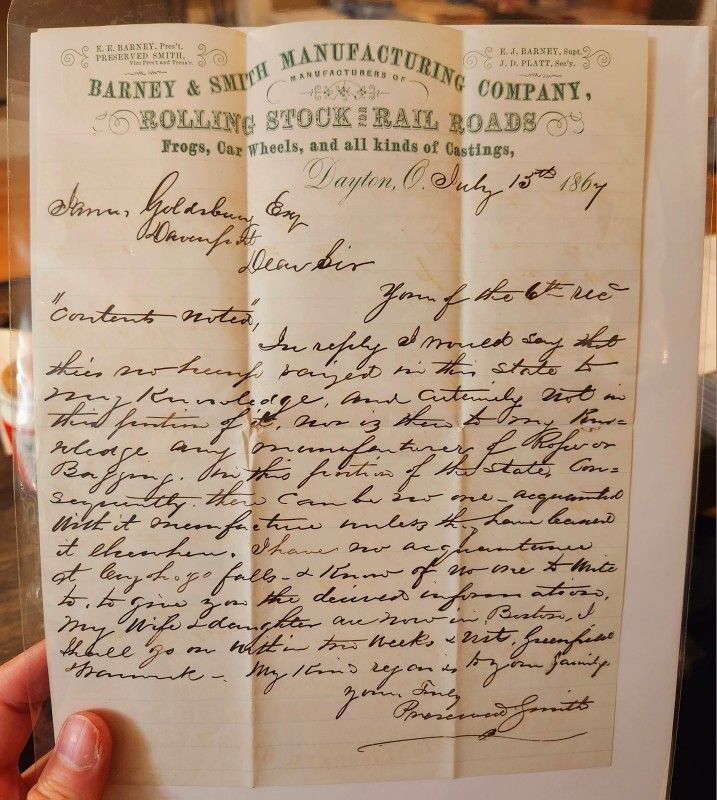 E. E. BARNEY, Pres't.
PRESERVED SMITH,
Vice Pres't and Treas'r.
E. J. BARNEY, Supt.
J. D. PLATT, Sec'y.
BARNEY & SMITH MANUFACTURING COMPANY,
MANUFACTURERS OF
ROLLING STOCK FOR RAIL ROADS
Frogs, Car Wheels, and all kinds of Castings,
Dayton, O. July 15th 1867
James Goldsbury Esq
Davenport
Dear Sir
Yours of the 6th rec
"Contents noted",
In reply I would say that
no hemp raized in this State to
my Knowledge, and certainly not in
this portion of it, nor is there to my Know=
ledge any manufacturer of Rope or
Bagging. in this portion of the State, Con=
sequently there can be no one acquainted
with it manufacture unless they have learned
it elsewhere. I have no acquaintance
at Cuyhogo falls - & Know of no one to write
to, to give you the desired information.
My Wife & daughter are now in Boston, I
shall go on within two weeks & visit Greenfield
My Kind regards to your family.
yours Truly
Preserved Smith